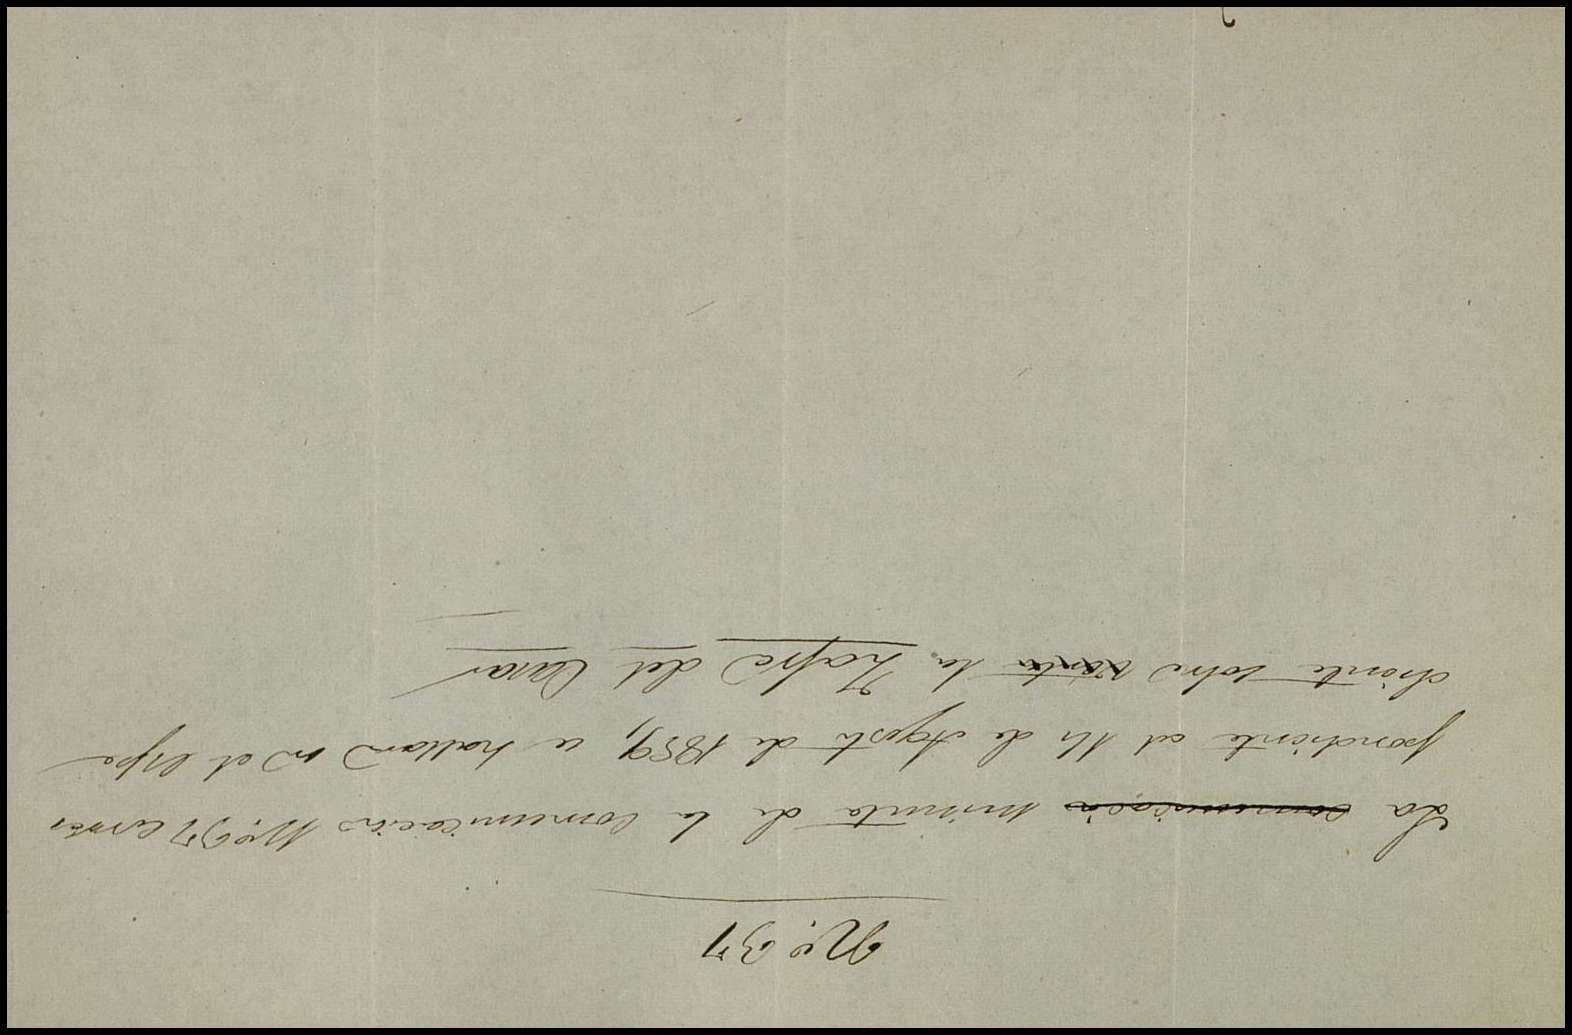 Nº. 37
La comunicació minuta de la comunicacion Nº. 37 corres
pondiente al 14 de Agosto de 1859, se hallará en el espe
diente sobre la Zafra del